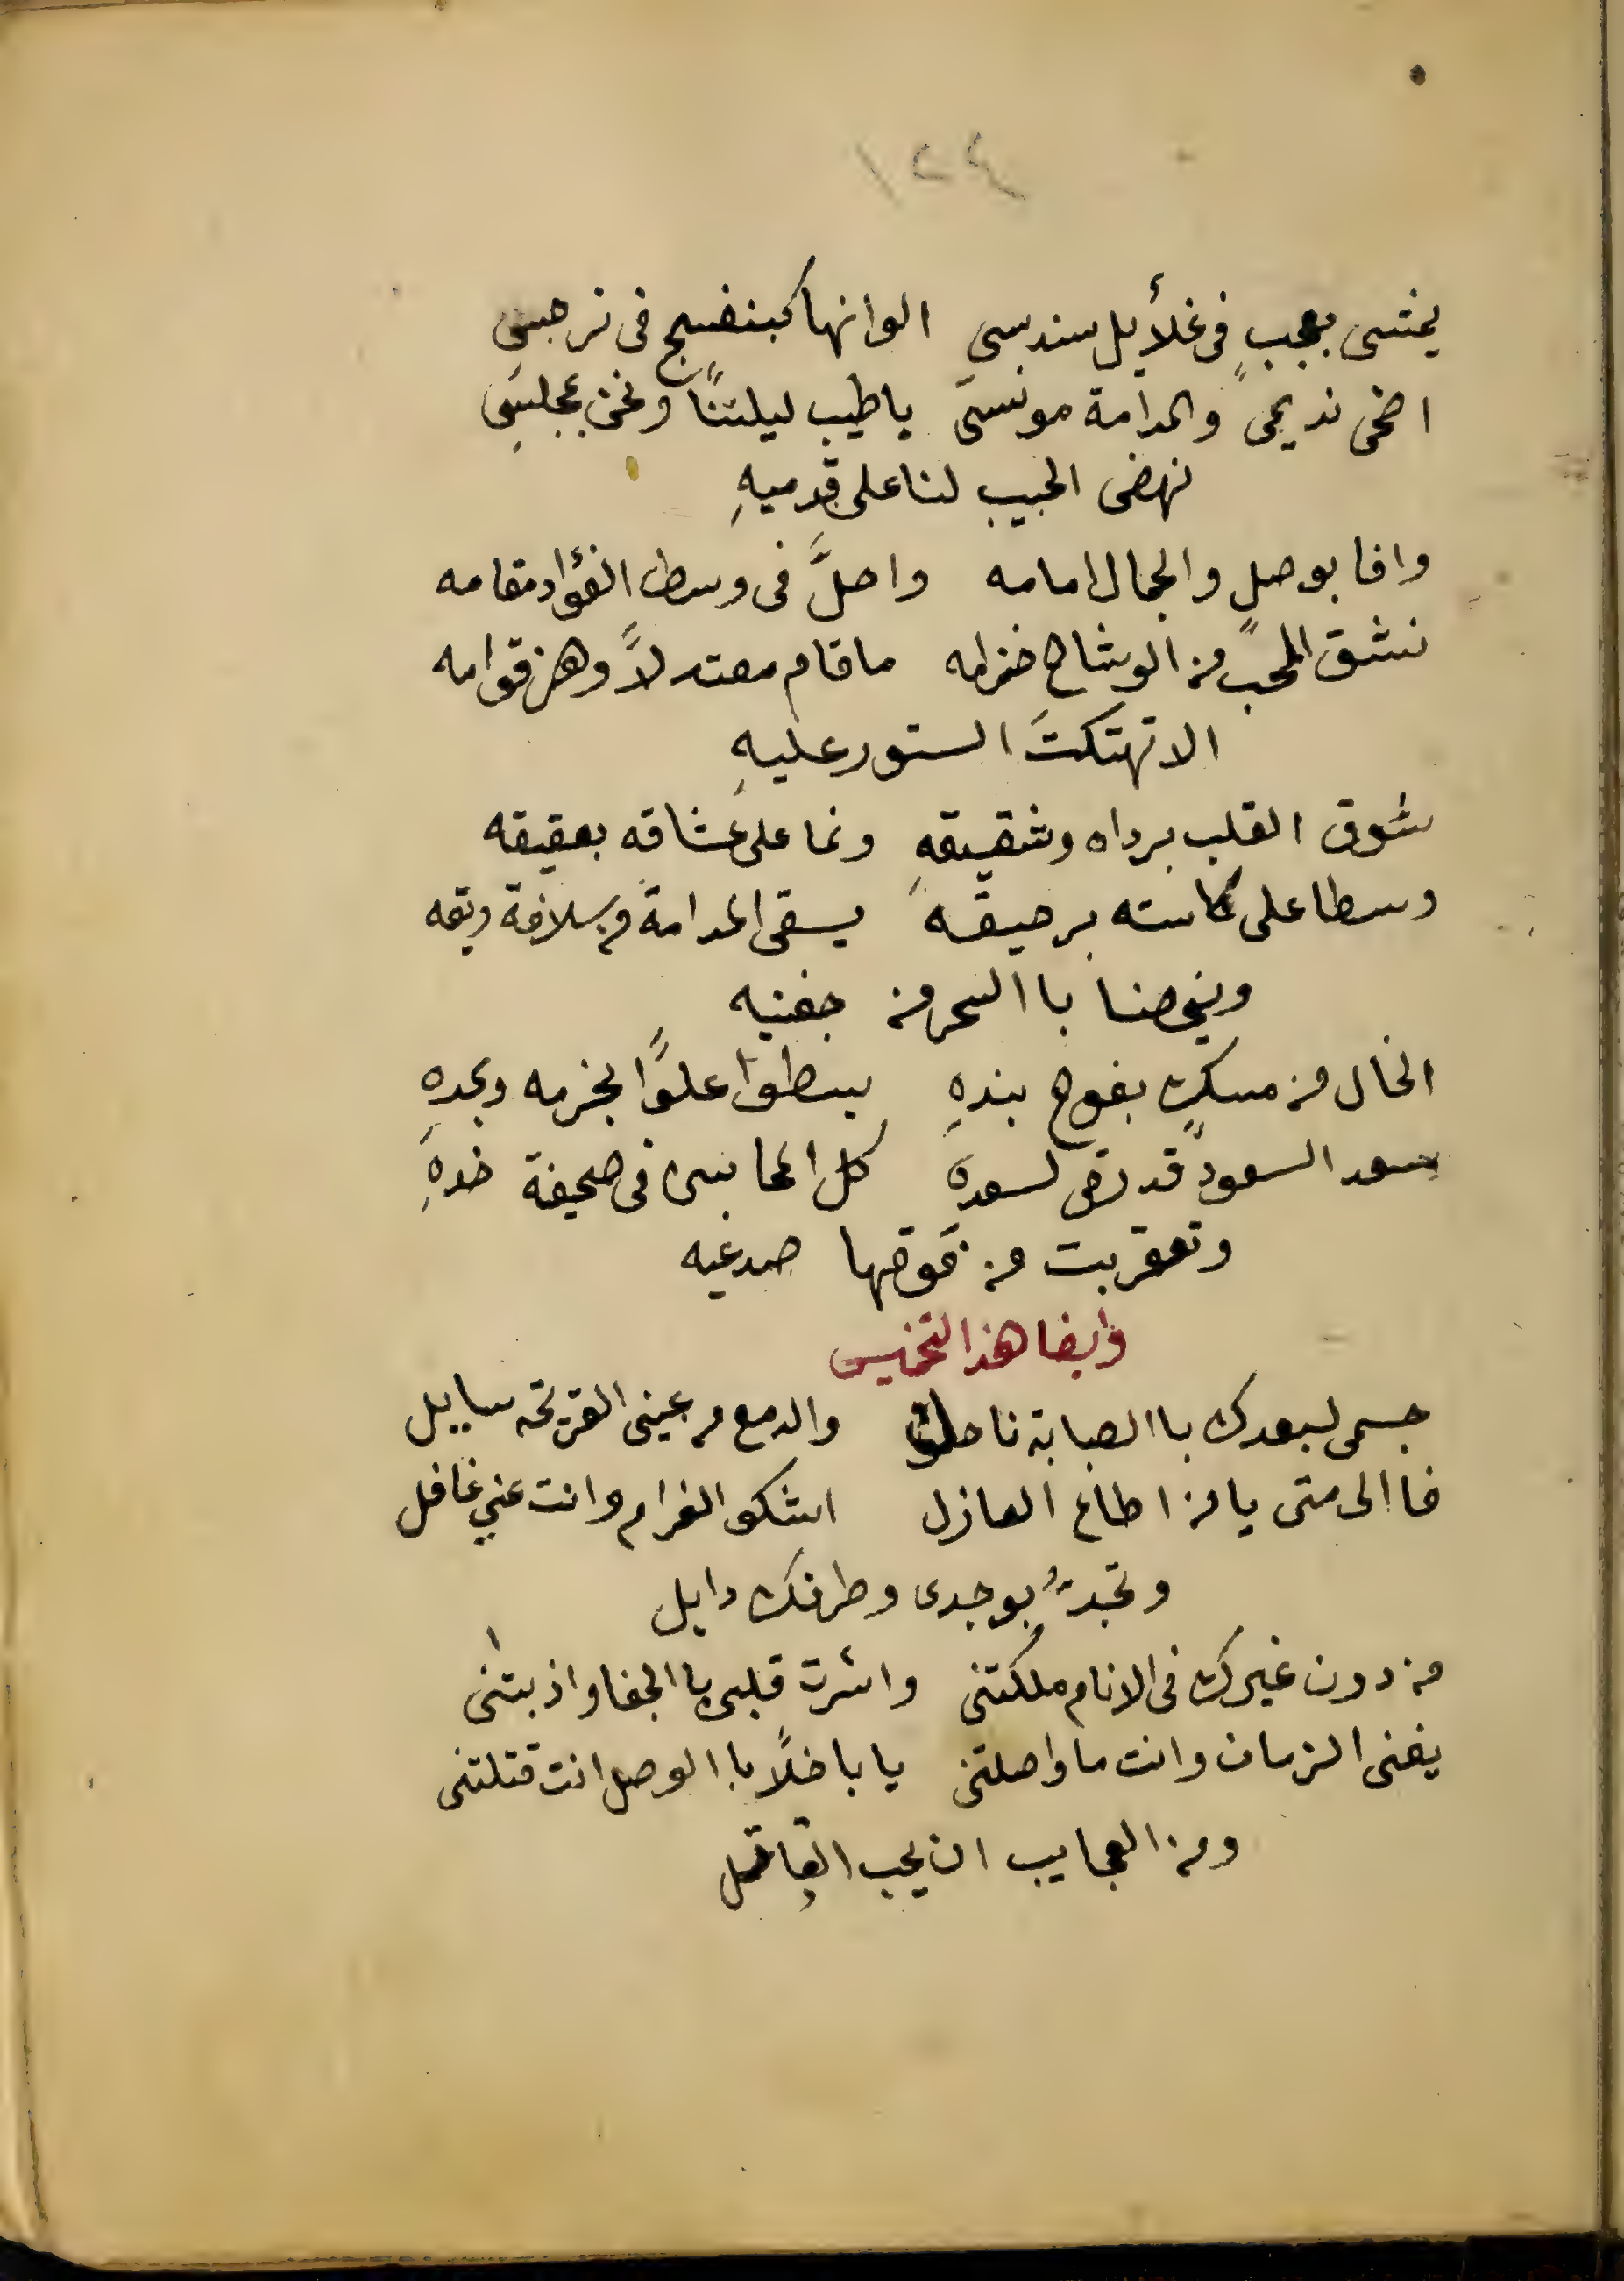 يمشى بعجبٍ فى غلأيل سندسىِ الوانها كبنفسجٍ فى نرجسىِ
اضحى نديمى والمدامة مونسى ياطيب ليلتنًا ونحن بمجلسِى
نهض الحبيب لنا على قدميهِ
وافا بوصلٍ والجمال امامه واحلَّ فى وسط الفؤاد مقامه
نشق المحب من الوشاح خزامه ما قام معتدلاً وهز قوامه
الا تهتكتَ الستور عليهِ
شوق القلب برداه وشقيقهِ ونما على عشاقه بعقيقه
وسطا على كاسته برحيقه يسقى المدامة من سلافة ريقه
ويخصنا باالسحر من جفنيه
الخال من مسكٍ يفوح بندهِ يسطوا علوًا بخزمه وبجدهِ
بسعد السعود قد رقى لسعدهِ كل المحاسن فى صحيفة خدهِ
وتعقربت من فوقها صدغيه
وايضا هذا التخميس
جسمى لبعدك باالصبابة ناحل والدمع من عينى القريحه سايل
فاالى متى يا من اطاع العازل اشكو الغرام وانت عني غافل
وتجدُّ بوجدى وطرفك دابل
من دون غيرك فى الانام ملكتنى واسرت قلبى باالجفا واذبتنى
يفنى الزمان وانت ما واصلتنى يا باخلًا باالوصل انت قتلتنى
ومن العجايب ان يحب القاتل